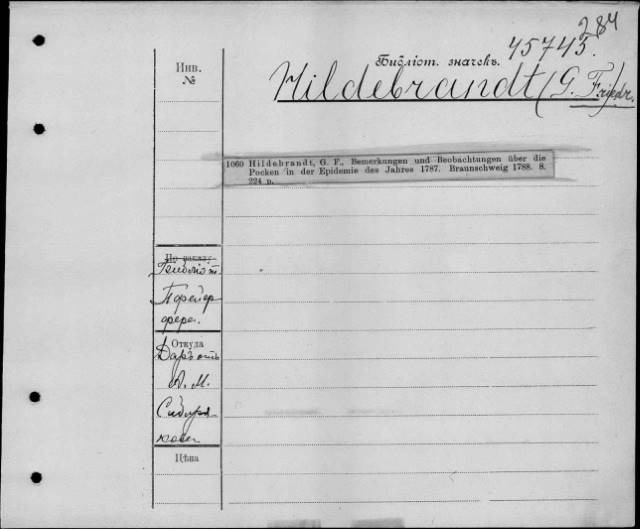 284
45743.
Библіот. значекъ.
Инв.
№
Hildebrandt (G. Friedr.
1060 Hildebrandt, G. F., Bemerkungen und Beobachtungen über die
Pocken in der Epidemie des Jahres 1787. Braunschweig 1788. 8.
224 p.
Откуда
Даръ отъ
А. М.
Сибиря
кова
Цѣна